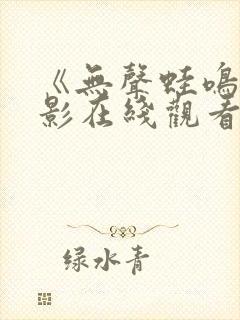 《無聲蛙鳴
影在綫觀看
绿水青